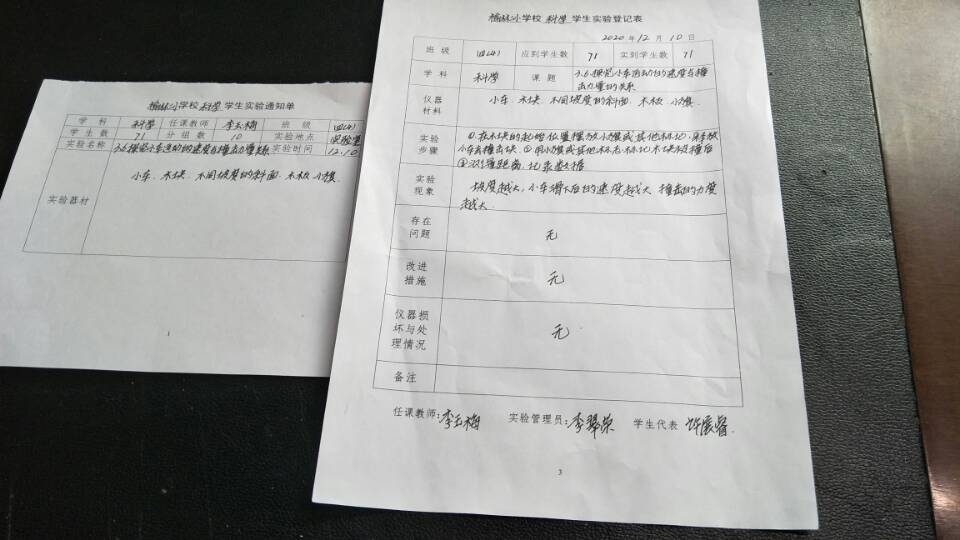 榆林小学校 科学 学生实验通知单
学科 科学 任课教师 李玉梅 班级 四(4)
学生数 71 分组数 10 实验地点 实验室
实验名称 3.6探究小车运动的速度与撞击力量关系 实验时间 12.10
实验器材
小车、木块、不同坡度的斜面、木板、小旗、
1
榆林小学校 科学 学生实验登记表
2020年12月10日
班级 四(4) 应到学生数 71 实到学生数 71
学科 科学 课题 3.6探究小车运动的速度与撞
击力量的关系
仪器
材料
小车、木块、不同坡度的斜面、木板、小旗、
实验
步骤
①在木块的起始位置摆放小旗或其他标记,
小车去撞击木块、②用小旗或其他标志标记木块被撞后
③测量距离、记录数据
实验
现象
坡度越大,小车滑下后的速度越大 撞击的力度
越大、
存在
问题
无
改进
措施
无
仪器损
坏与处
理情况
无
备注
任课教师:李玉梅 实验管理员:李翠荣 学生代表 许宸睿.
3